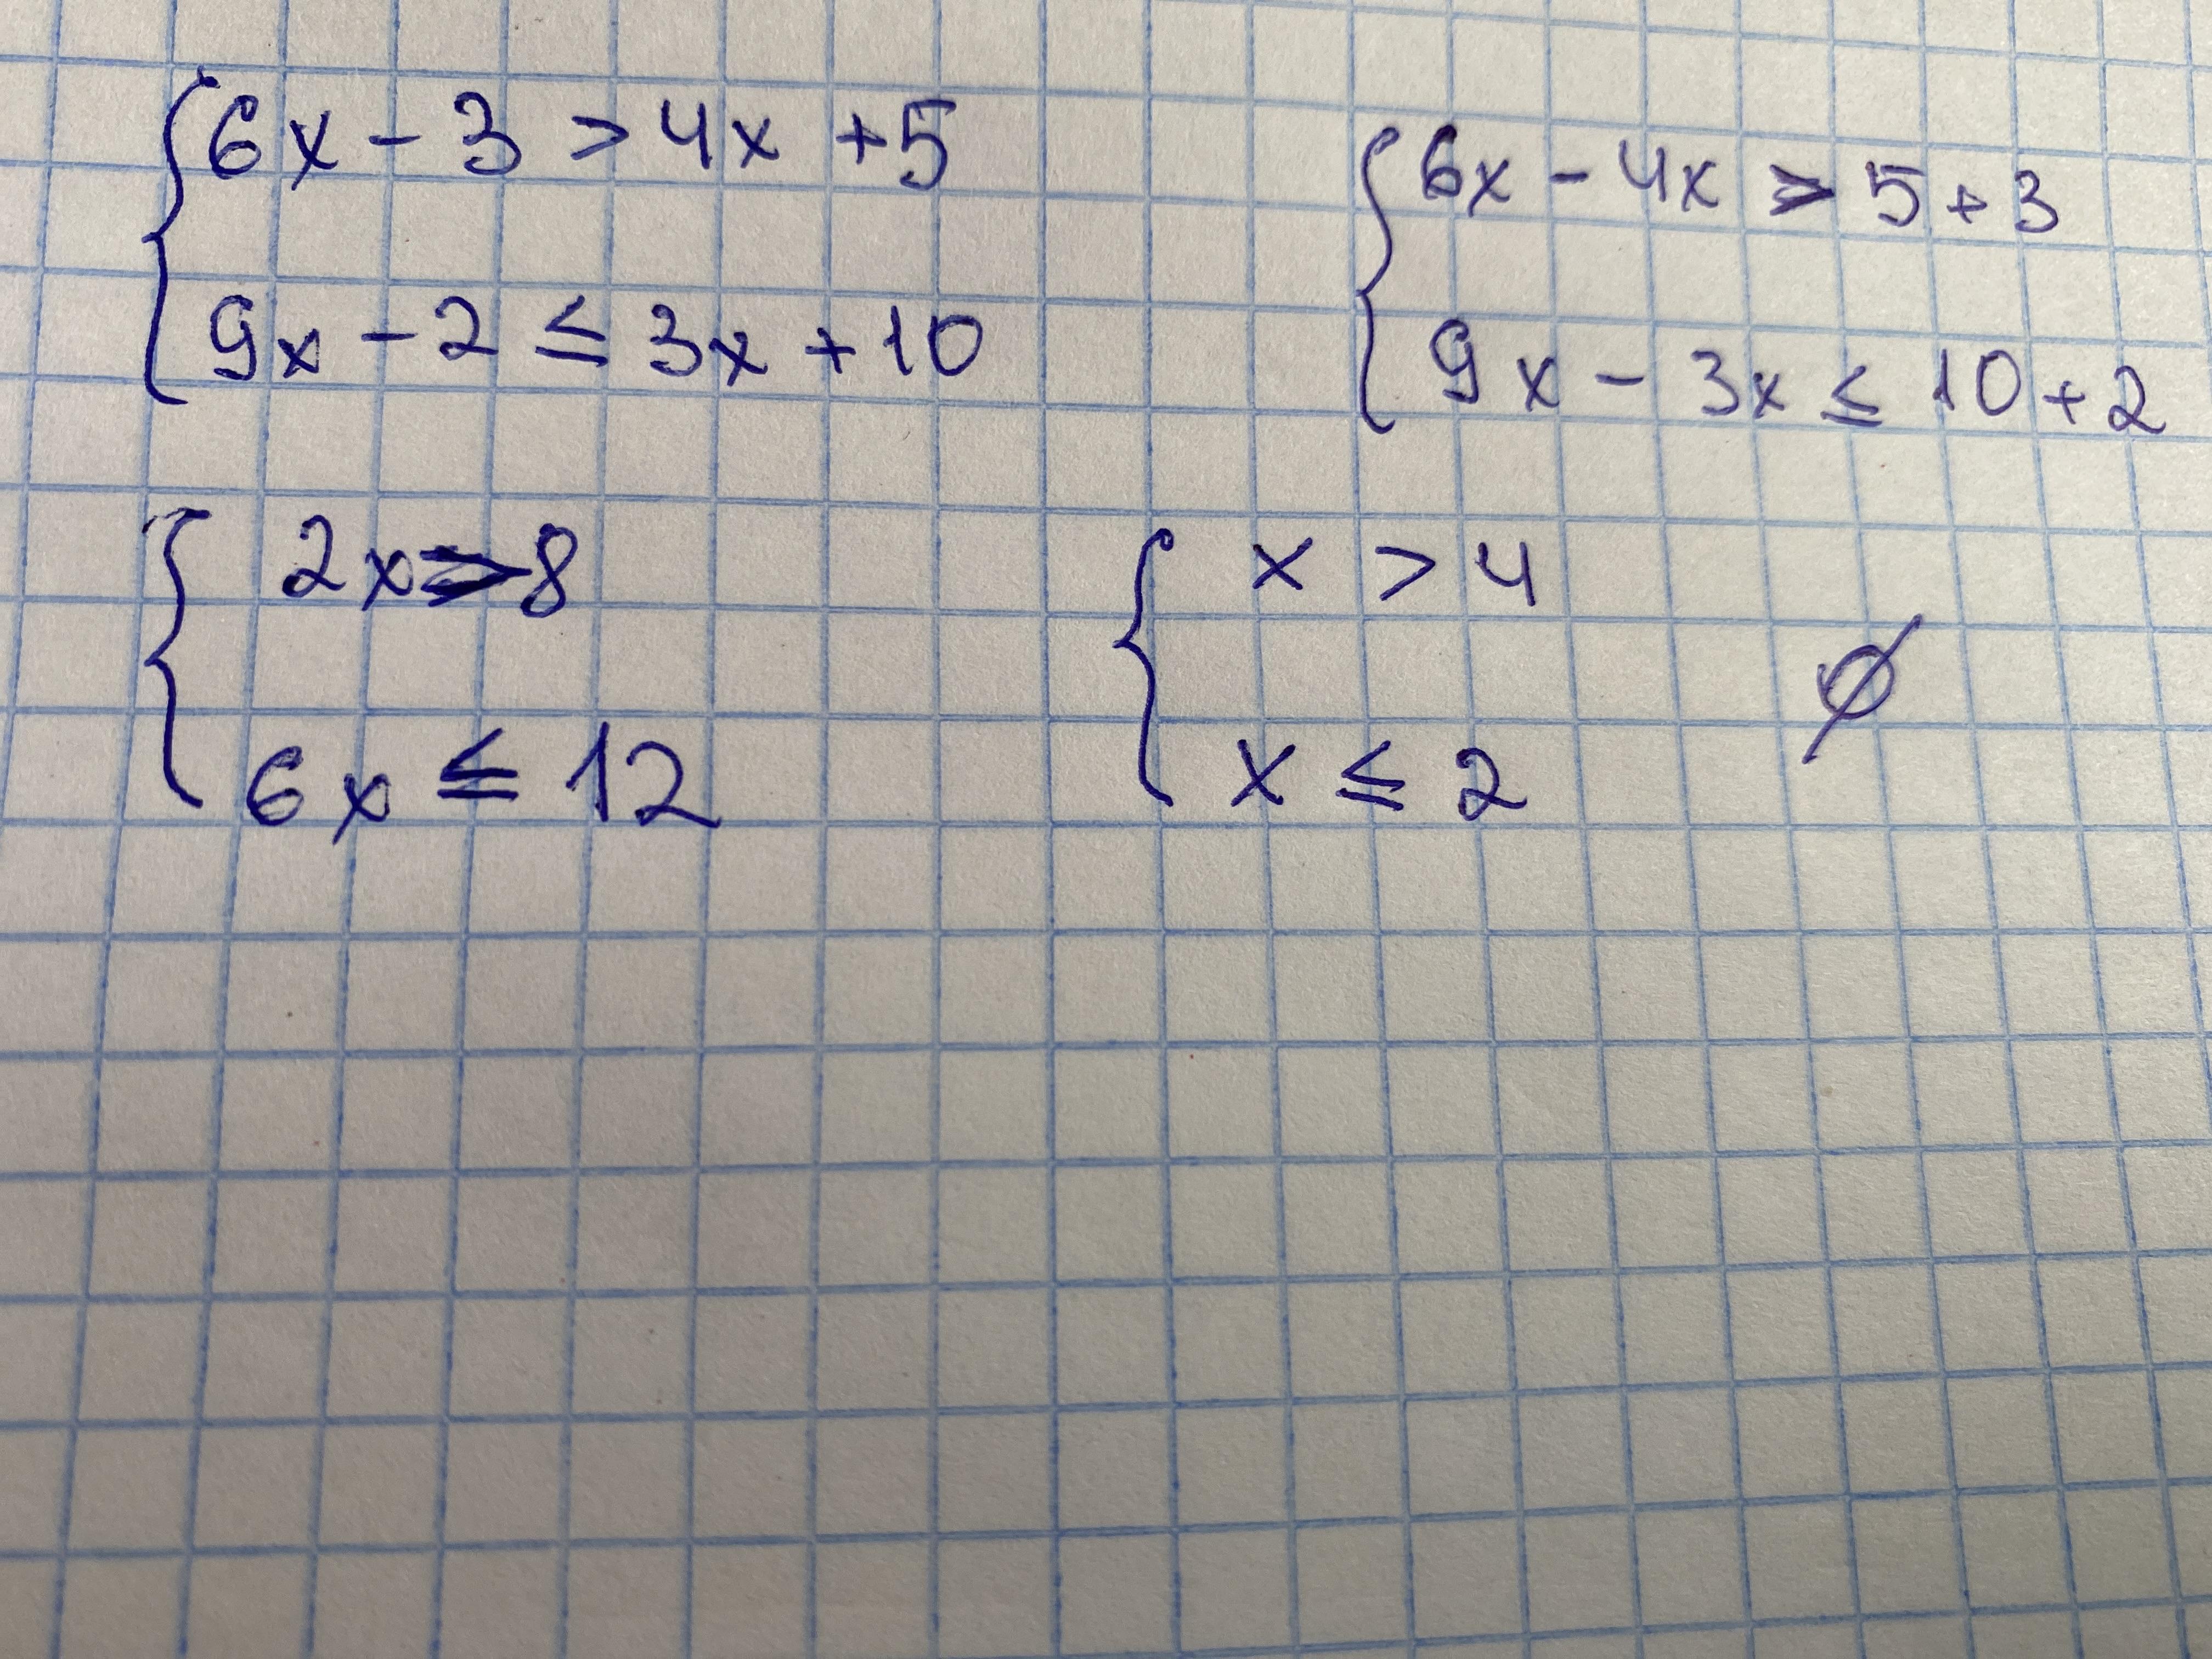 6x - 3 > 4x + 5
9x - 2 ≤ 3x + 10
6x - 4x > 5 + 3
9x - 3x ≤ 10 + 2
2x > 8
6x ≤ 12
x > 4
x ≤ 2
∅